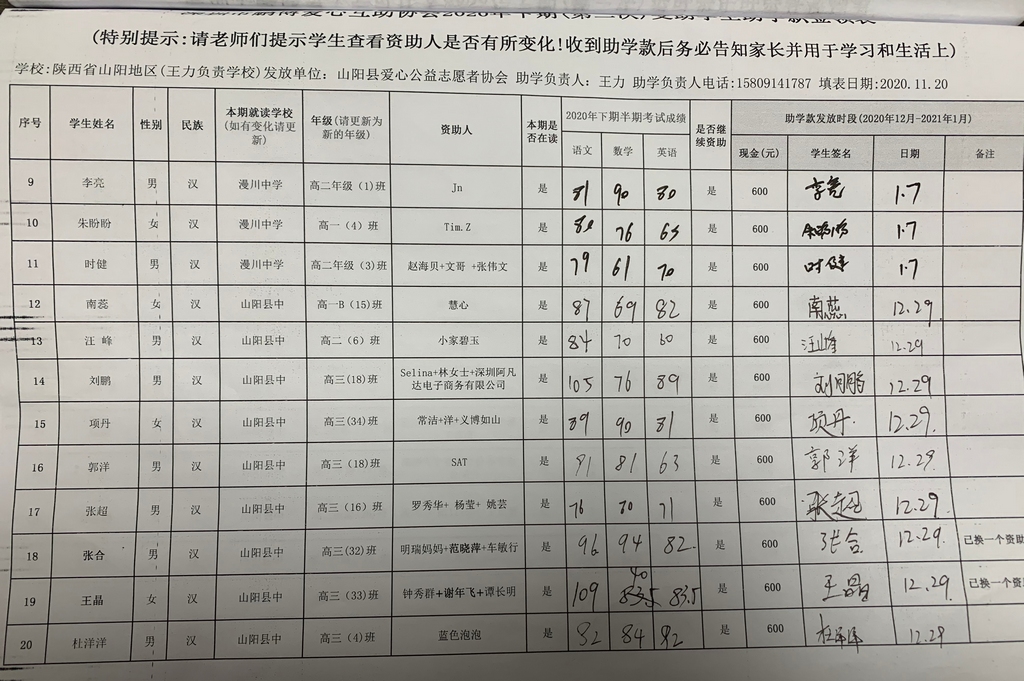 (特别提示:请老师们提示学生查看资助人是否有所变化!收到助学款后务必告知家长并用于学习和生活上)
学校:陕西省山阳地区(王力负责学校)发放单位: 山阳县爱心公益志愿者协会 助学负责人: 王力 助学负责人电话:15809141787 填表日期:2020.11.20
序号 学生姓名 性别 民族 本期就读学校(如有变化请更新) 年级(请更新为新的年级) 资助人 本期是否在读 2020年下期半期考试成绩 是否继续资助 助学款发放时段(2020年12月-2021年1月)
语文 数学 英语 现金(元) 学生签名 日期 备注
9 李亮 男 汉 漫川中学 高二年级(1)班 Jn 是 81 90 80 是 600 李亮 1.7
10 朱盼盼 女 汉 漫川中学 高一(4)班 Tim.Z 是 80 76 65 是 600 朱盼盼 1.7
11 时健 男 汉 漫川中学 高二年级(3)班 赵海贝+文哥 +张伟文 是 79 61 70 是 600 时健 1.7
12 南蕊 女 汉 山阳县中 高一B(15)班 慧心 是 87 69 82 是 600 南蕊 12.29
13 汪 峰 男 汉 山阳县中 高二(6)班 小家碧玉 是 84 70 60 是 600 汪峰 12.29
14 刘鹏 男 汉 山阳县中 高三(18)班 Selina+林女士+深圳阿凡达电子商务有限公司 是 105 76 89 是 600 刘鹏 12.29
15 项丹 女 汉 山阳县中 高三(34)班 常洁+洋+义博如山 是 89 90 81 是 600 项丹. 12.29.
16 郭洋 男 汉 山阳县中 高三(18)班 SAT 是 91 81 63 是 600 郭洋 12.29
17 张超 男 汉 山阳县中 高三(16)班 罗秀华+ 杨莹+ 姚芸 是 76 70 71 是 600 张超 12.29
18 张合 男 汉 山阳县中 高三(32)班 明瑞妈妈+范晓萍+车敏行 是 96 94 82. 是 600 张合 12.29. 已换一个资助
19 王晶 女 汉 山阳县中 高三(33)班 钟秀群+谢年飞+谭长明 是 109 40 83.5 是 600 王晶 12.29 已换一个资助
20 杜洋洋 男 汉 山阳县中 高三(4)班 蓝色泡泡 是 92 84 92 是 600 杜洋洋 12.29